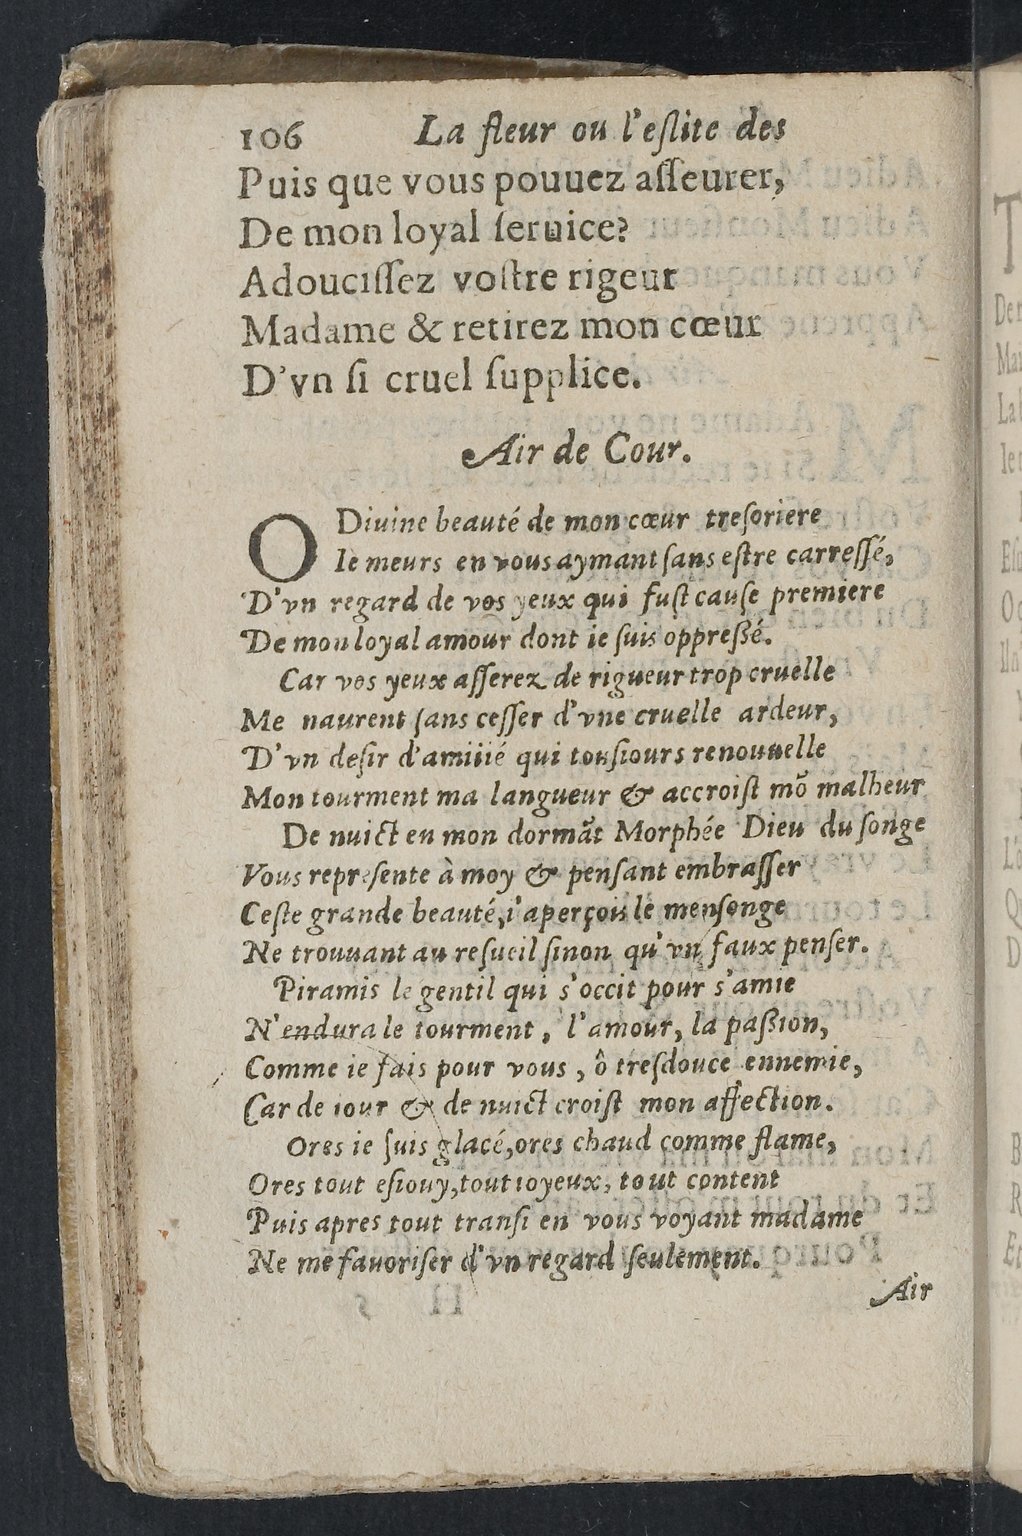 106 La fleur ou l'eſlite des
Puis que vous pouuez aſſeurer,
De mon loyal ſeruice?
Adouciſſez voſtre rigeur
Madame & retirez mon cœur
D'vn ſi cruel ſupplice.
Air de Cour.
O Diuine beauté de mon cœur treſoriere
Ie meurs en vous aymant ſans eſtre carreſſé,
D'vn regard de vos yeux qui fuſt cauſe premiere
De mon loyal amour dont ie ſuis oppreßé.
Car vos yeux aſſerez de rigueur trop cruelle
Me naurent ſans ceſſer d'vne cruelle ardeur,
D'vn deſir d'amiiié qui touſiours renouuelle
Mon tourment ma langueur & accroiſt mõ malheur
De nuict en mon dormãt Morphée Dieu du ſonge
Vous repreſente à moy & penſant embraſſer
Ceſte grande beauté, i'aperçou le menſonge
Ne trouuant au reſueil ſinon qu'vn faux penſer.
Piramis le gentil qui s'occit pour s'amie
N'endura le tourment, l'amour, la paßion,
Comme ie fais pour vous, ô treſdouce ennemie,
Car de iour & de nuict croiſt mon affection.
Ores ie ſuis glacé, ores chaud comme flame,
Ores tout eſiouy, tout ioyeux, tout content
Puis apres tout tranſi en vous voyant madame
Ne me fauoriſer d'vn regard ſeulement.
Air